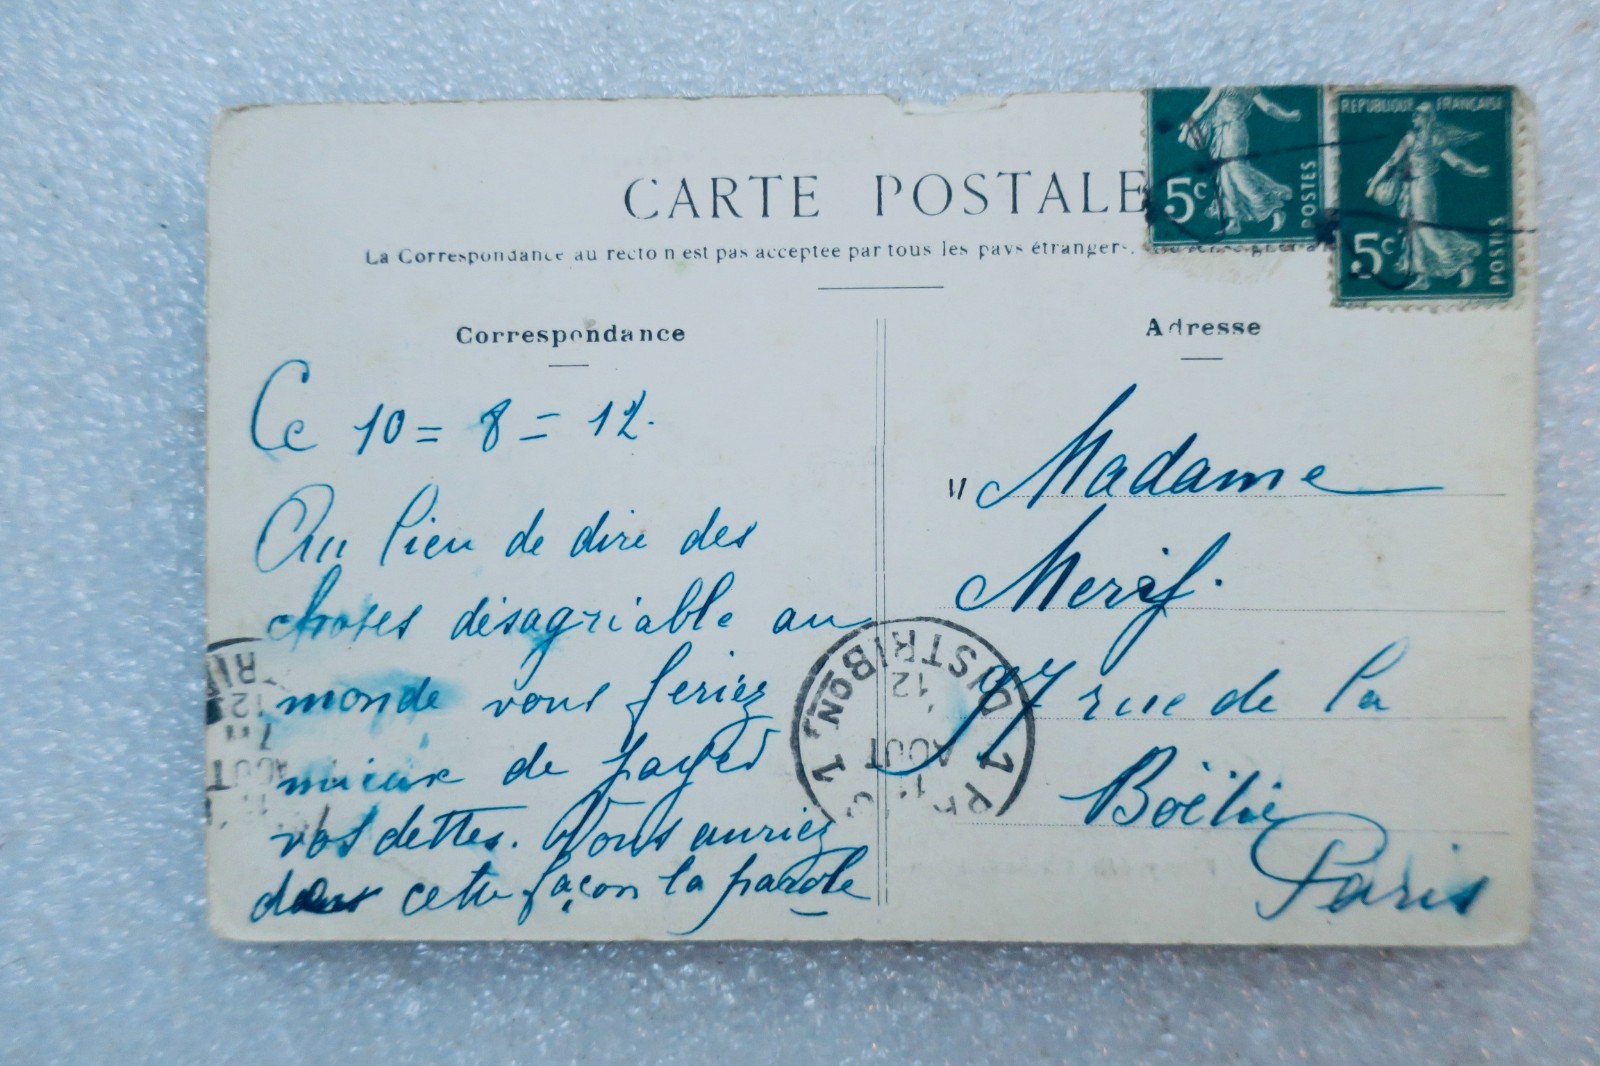 CARTE POSTALE
La Correspondance au recto n est pas acceptée par tous les pays étrangers.
RÉPUBLIQUE FRANÇAISE
5c
POSTES
5c
POSTES
Correspondance
Ce 10 = 8 = 12.
Au lieu de dire des
choses désagriable au
monde vous feriez
mieux de payer
vos dettes. Vous auriez
dans cette façon la parole
Adresse
Madame
97 rue de la
Boëtie
Paris
DISTRIBON,
12
AOUT
11
12
AOUT